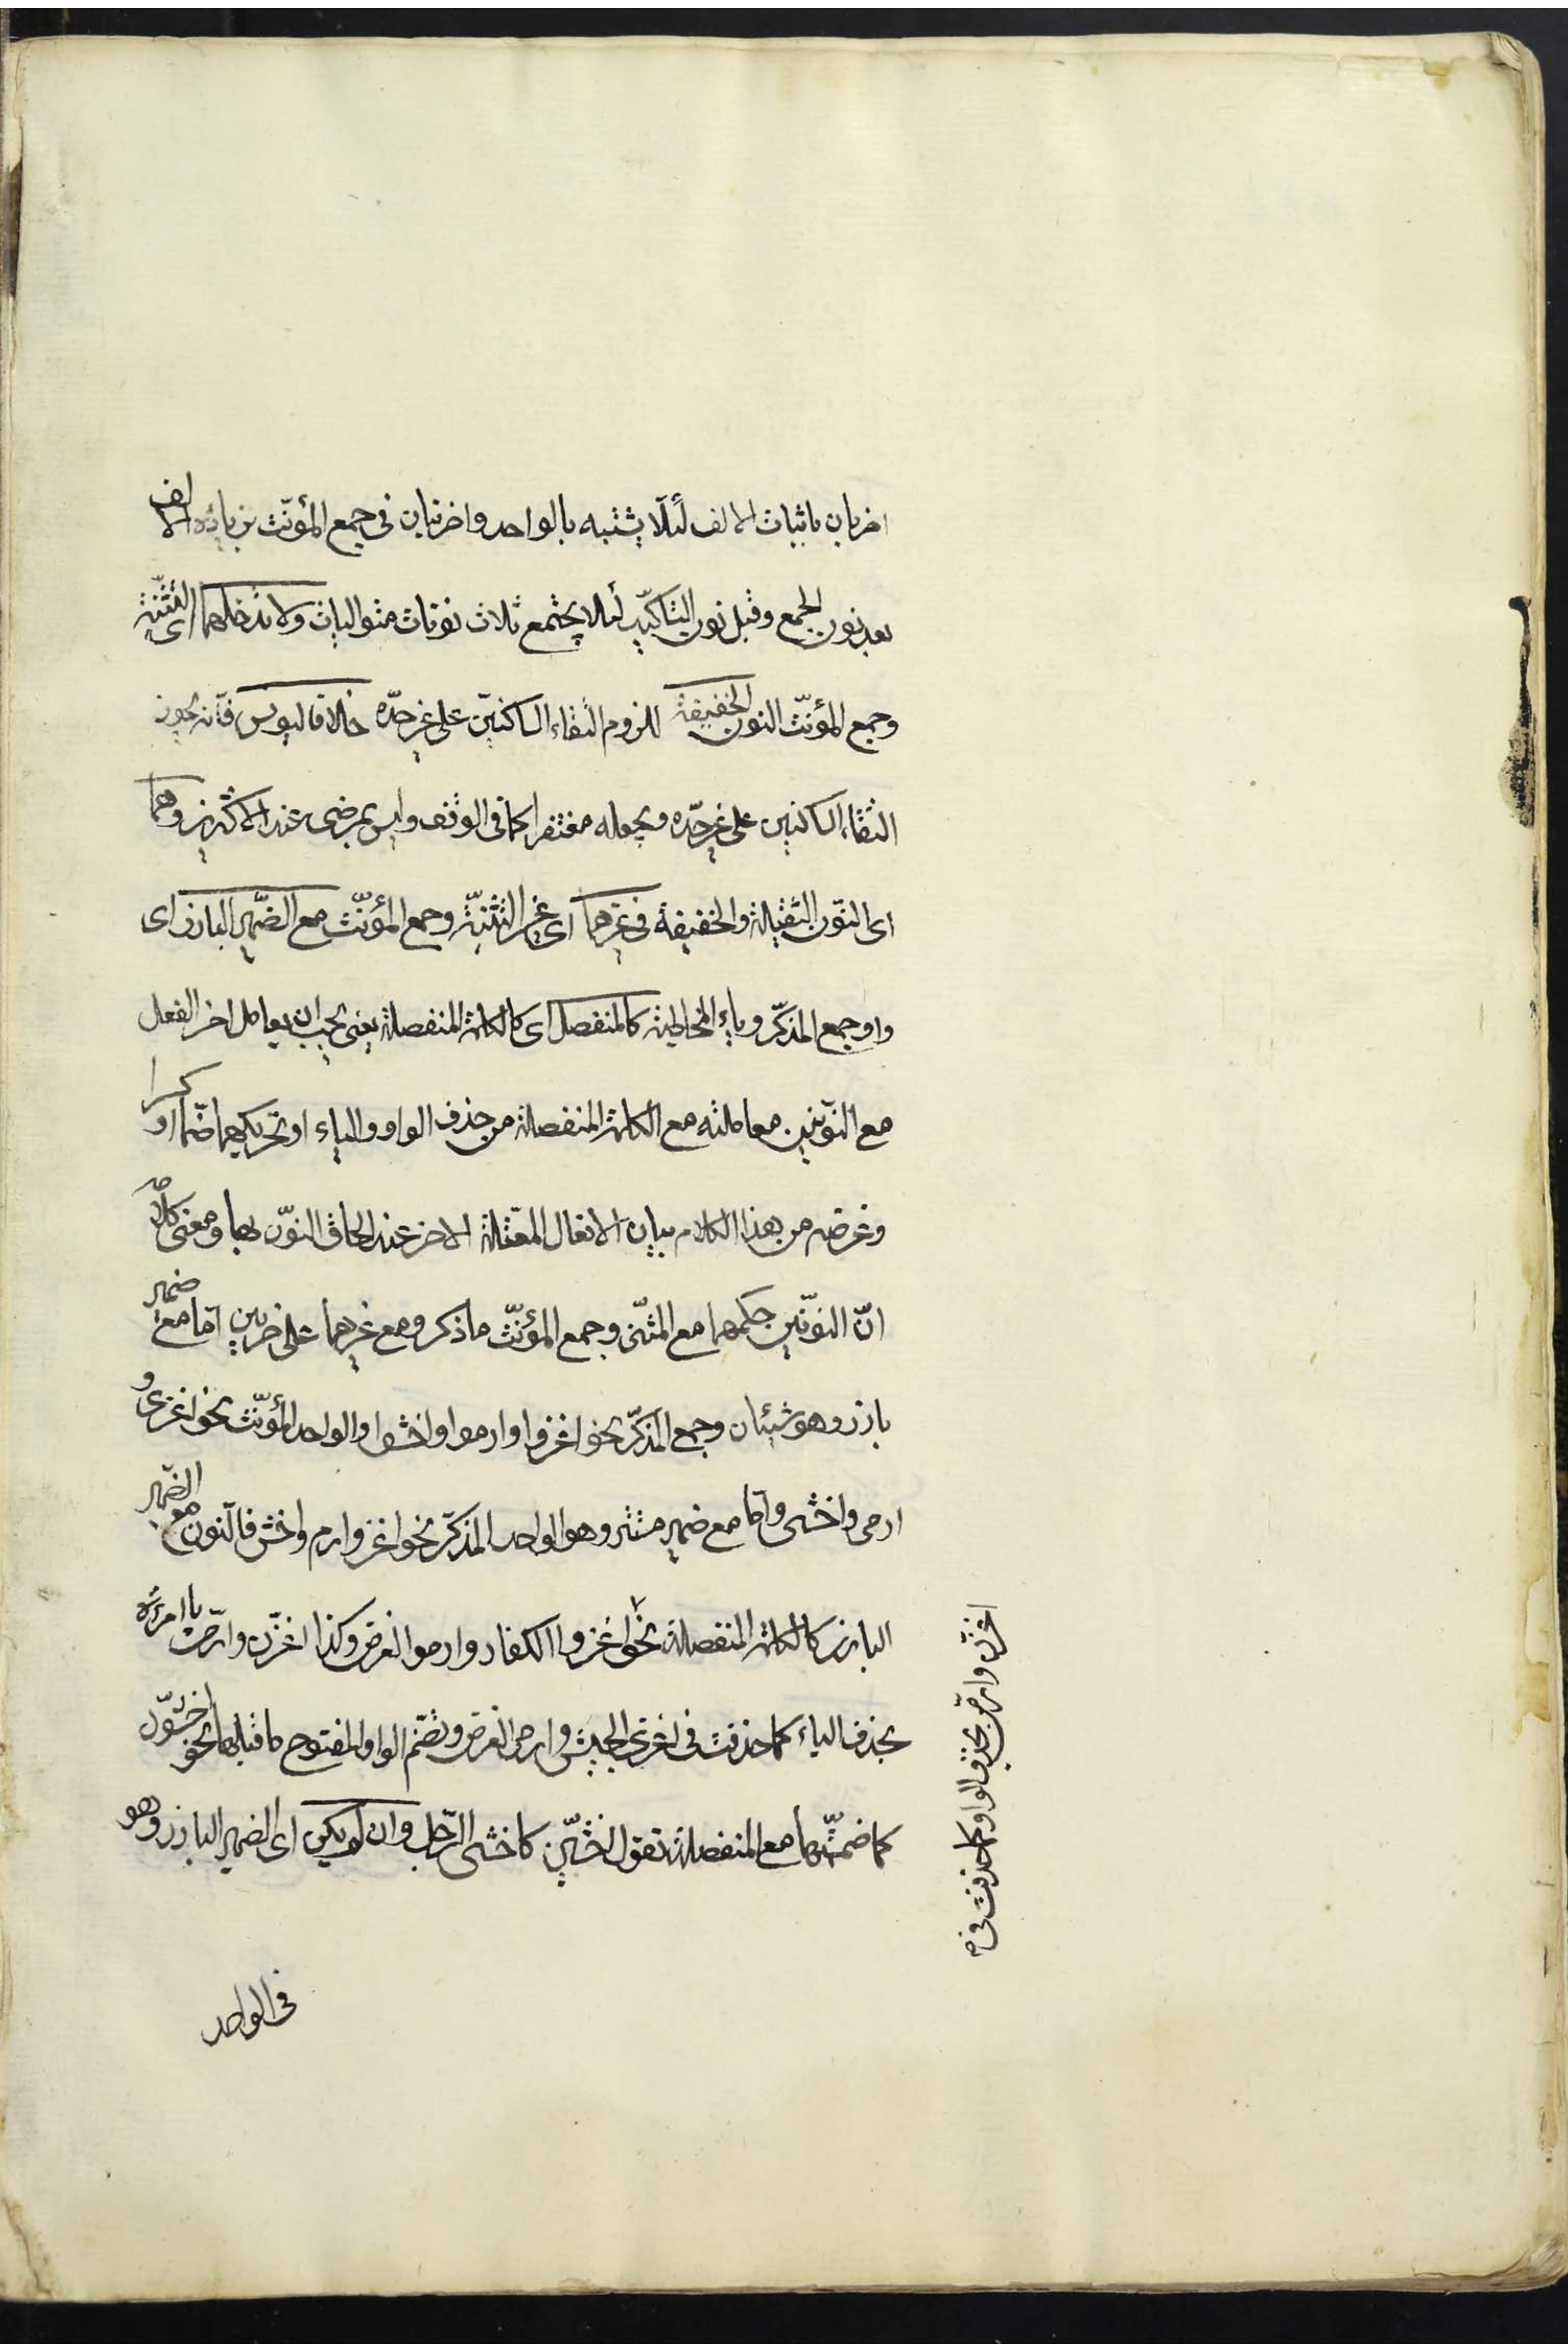 اضربان باثبات الالف لئلا يشتبه بالواحد واضربنان فى جمع المؤنّث بزيادة الالف
بعد نون الجمع وقبل نون التاكيد لئلا يجتمع ثلاث نونات متواليات ولا تدخلهما اى التثنية
وجمع المؤنّث النون الخفيفة للزوم التقاء الساكنين على غير حدّه خلافا ليونس فانه يجوز
التقاء الساكنين على غير حدّه ويجعله مغتفرا كما فى الوقف وليس بمرضى عند الاكثرين وهما
اى النون الثقيلة والخفيفة فى غيرهما اى غير التثنية وجمع المؤنّث مع الضّمير البارز اى
واو جمع المذكّر وياء المخاطبة كالمنفصل اى كالكلمة المنفصلة يعنى يجب ان يعامل اخر الفعل
مع النونين معاملته مع الكلمة المنفصلة من حذف الواو والياء او تحريكهما ضمّا او كسرا
وغرضه من هذا الكلام بيان الافعال المعتلة الاخر عند الحاق النون بها ومعنى كلامه
انّ النونين حكمهما مع المثنّى وجمع المؤنّث ما ذكر ومع غيرهما على ضربين امّا مع ضمير
بارز وهو شيئان وجمع المذكّر نحو اغزوا وارموا واخشوا والواحد المؤنّث نحو اغزى و
ارمى واخشى وامّا مع ضمير مستتر وهو الواحد المذكّر نحو اغز وارم واخش فالنون مع الضمير
البارز كالكلمة المنفصلة نحو اغزوا الكفار وارموا الغرض وكذا اغزن وارمن يا امرءة
بحذف الياء كما حذفت فى اغزى الجيش وارمى الغرض وتضم الواو المفتوح ما قبلها نحو اخشون
كما ضممتها مع المنفصلة تقول اخشين كاخشى الرّجل وان لم يكن اى الضمير البارز وهو
اغزن وارمن بحذف الواو كما حذفت فى
فى الواحد